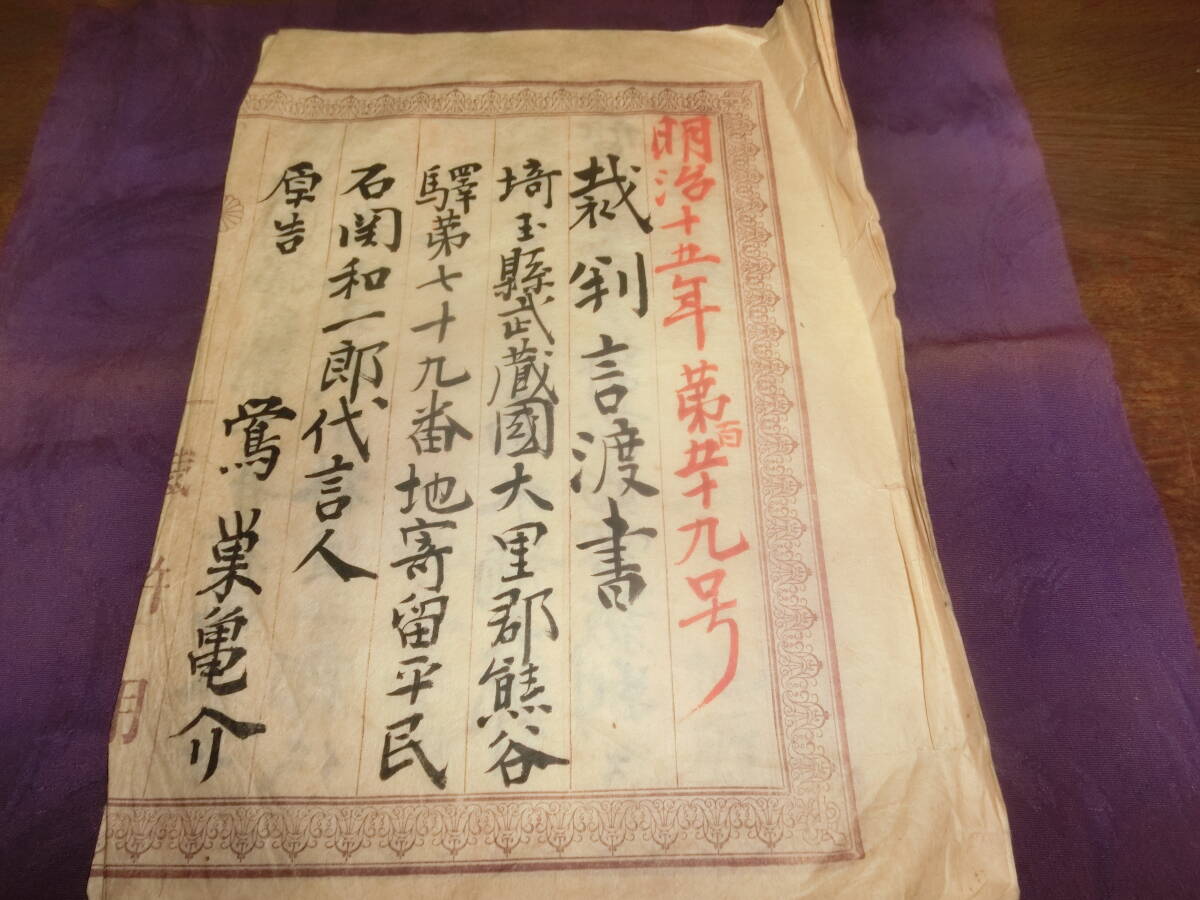 明治十五年第百五十九号
裁判言渡書
埼玉縣武蔵國大里郡熊谷
驛第七十九番地寄留平民
石関和一郎代言人
原告
鴬巣亀介